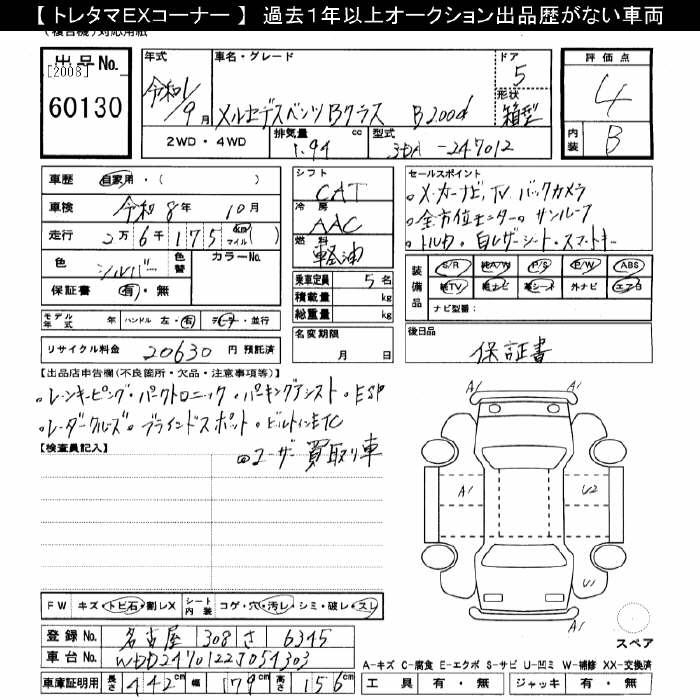 【 トレタマEXコーナー 】 過去１年以上オークション出品歴がない車両
(複合機)対応用紙
出品No.
[2008]
60130
年式
令和1/9月
車名・グレード
メルセデスベンツ Bクラス B200d
ドア
5
形状
箱型
2WD・4WD
排気量 cc
1.94
型式
3DA-247012
評価点
4
内装
B
車歴 自家用・( )
車検 令和8年10月
走行 2万6千175 km マイル ( )
色 シルバー
色替
カラーNo.
保証書 有・無
シフト
CAT
冷房
AAC
燃料
軽油
乗車定員 5名
積載量 kg
総重量 kg
名変期限
月 日
セールスポイント
。メーカーナビ,TV バックカメラ
。全方位モニター。サンルーフ
。トルカ・白レザーシート・スマートキー
装備品
S/R 純A/W P/S P/W ABS
純TV 純ナビ 革シート 外ナビ エアB
ナビ型番:
モデル年式 年 ハンドル 左・右 ディーラー・並行
後日品
保証書
リサイクル料金 20630 円 預託済
【出品店申告欄(不良箇所・欠品・注意事項等)】
。レーンキーピング・パークトロニック・パーキングアシスト・ESP
。レーダークルーズ。ブラインドスポット・ビルトインETC
【検査員記入】
ユーザー買取り車
A1 A1
A1 U2
U1
A1
スペア
FW キズ・トビ石・割レX
シート内装 コゲ・穴・汚レ・シミ・破レ・スレ
登録No. 名古屋 308 さ 6345
車台No. WDD2470122J054303
車庫証明用 長さ 442cm 幅 179cm 高さ 156cm
A-キズ C-腐食 E-エクボ S-サビ U-凹ミ W-補修 XX-交換済
工具 有・無 ジャッキ 有・無